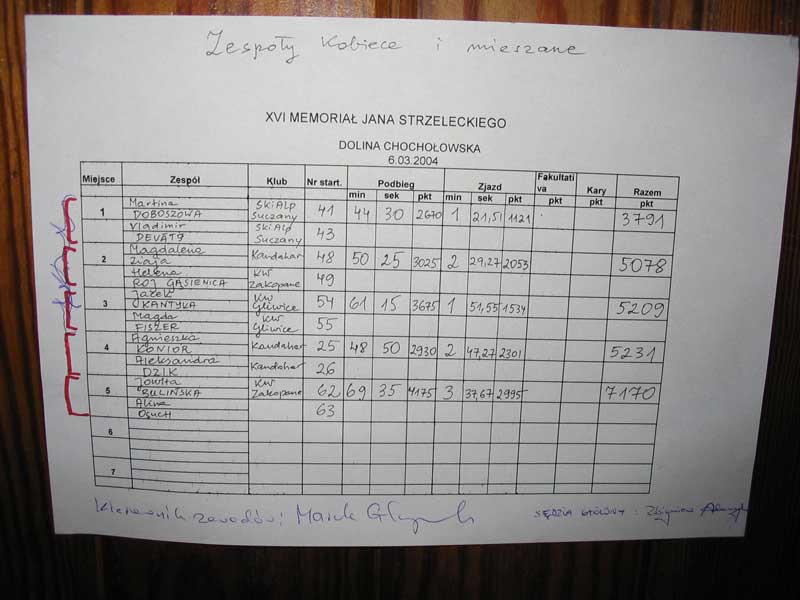 Zespoły Kobiece i mieszane
XVI MEMORIAŁ JANA STRZELECKIEGO
DOLINA CHOCHOŁOWSKA
6.03.2004
Miejsce Zespół Klub Nr start. Podbieg Zjazd Fakultati va Kary Razem
min sek pkt min sek pkt pkt pkt pkt
1 Martina DOBOSZOWA SkiAlp Suczany 41 44 30 2670 1 21,51 1121 3791
Vladimir DEVATY SkiAlp Suczany 43
2 Magdalena Ziaja Kandahar 48 50 25 3025 2 29,27 2053 5078
Helena ROJ GĄSIENICA KW Zakopane 49
3 Jacek OKANTYKA KW Gliwice 54 61 15 3675 1 51,55 1534 5209
Magda FISZER KW Gliwice 55
4 Agnieszka KONIOR Kandahar 25 48 50 2930 2 47,27 2301 5231
Aleksandra DZIK Kandahar 26
5 Jowita BULIŃSKA KW Zakopane 62 69 35 4175 3 37,67 2995 7170
Alina Oguch 63
6
7
Kierownik zawodów: Marek
SĘDZIA GŁÓWNY: Zbigniew